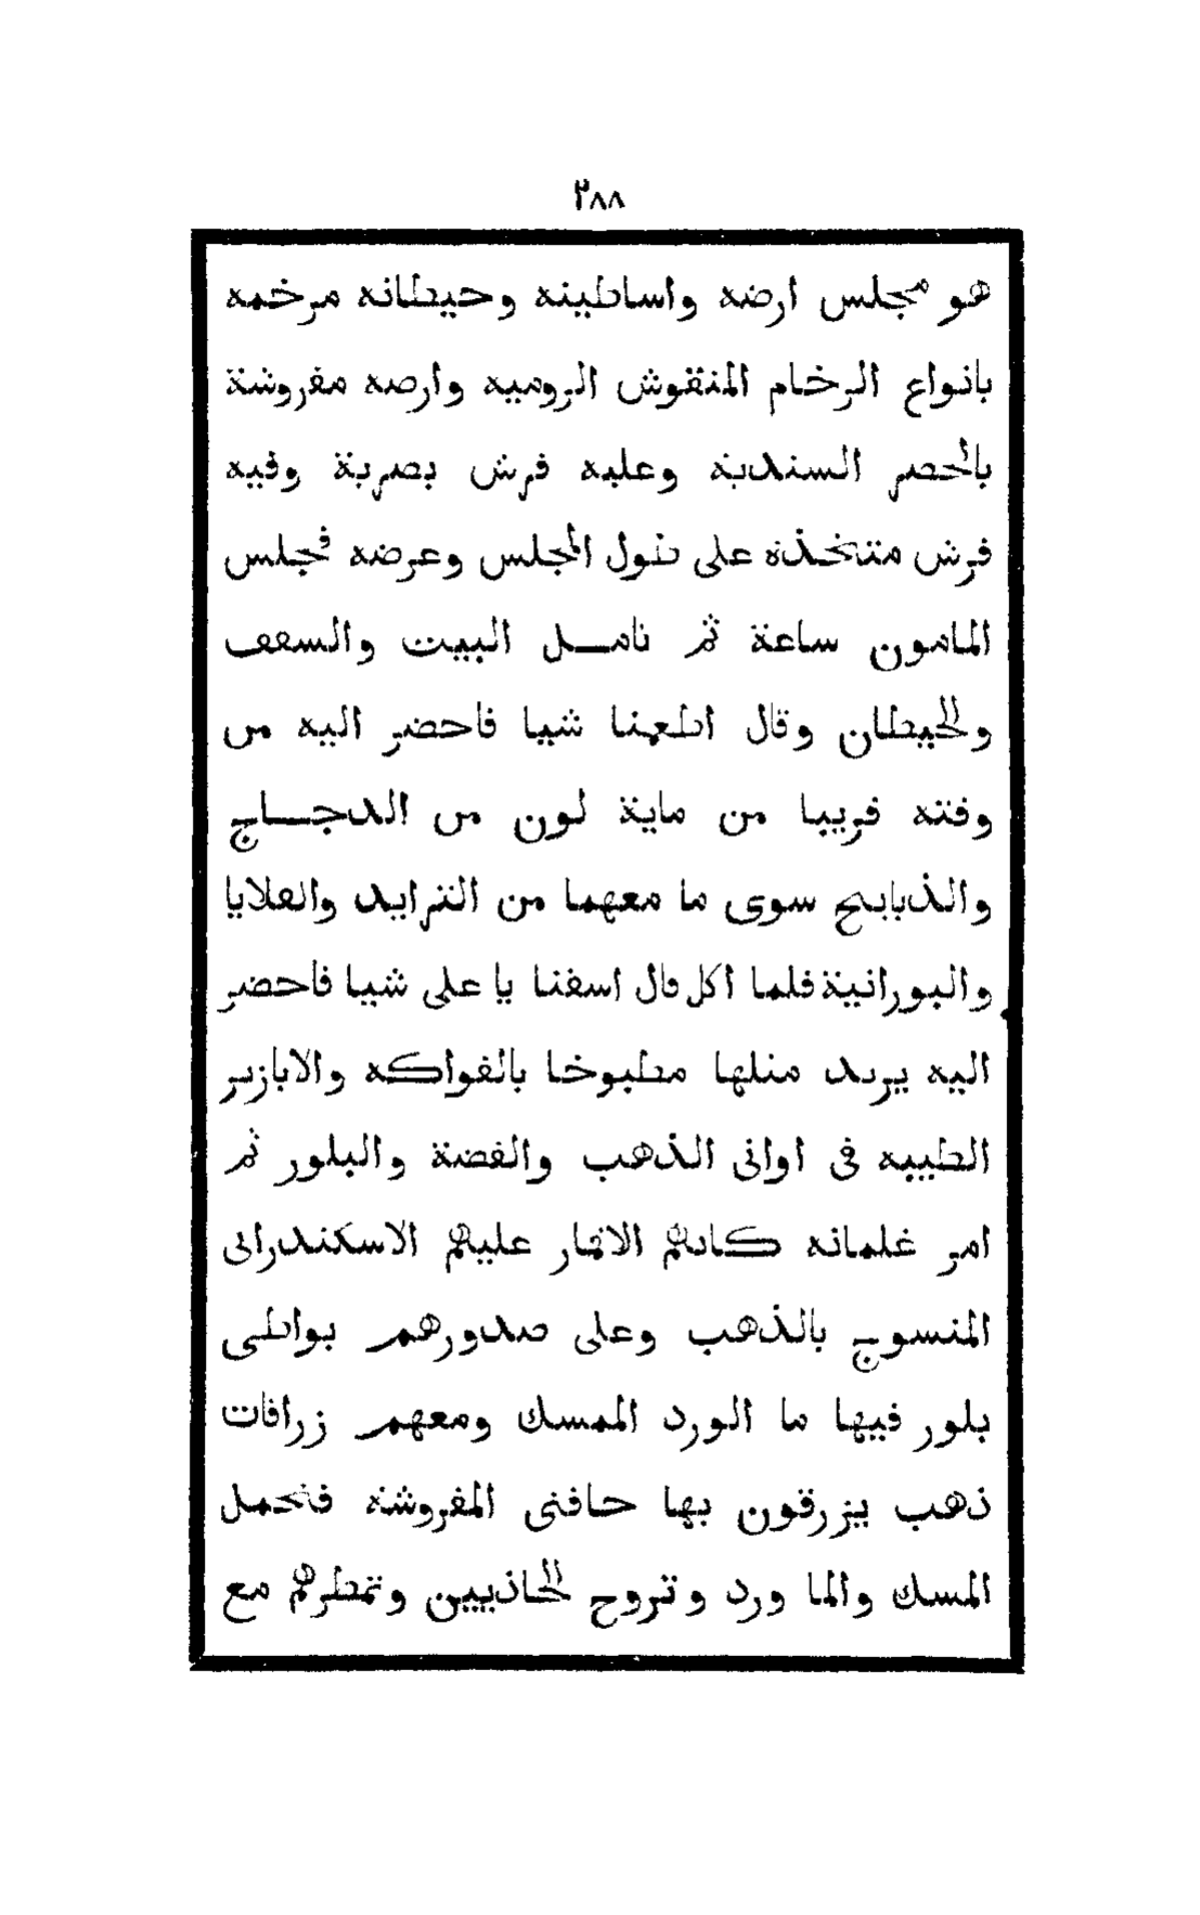 ٢٨٨
هو مجلس ارضه واساطينه وحيطانه مرخمه
بانواع الرخام المنقوش الروميه وارضه مفروشة
بالحصر السندية وعليه فرش بصرية وفيه
فرش متخذة على طول المجلس وعرضه فجلس
المامون ساعة ثم تامل البيت والسقف
والحيطان وقال اطعمنا شيا فاحضر اليه من
وقته قريبا من ماية لون من الدجاج
والذبايح سوى ما معهما من الثرايد والقلايا
والبورانية فلما اكل قال اسقنا يا على شيا فاحضر
اليه يريد مثلها مطبوخا بالفواكه والابازير
الطيبه فى اوانى الذهب والفضة والبلور ثم
امر غلمانه كانهم الاقمار عليهم الاسكندرانى
المنسوج بالذهب وعلى صدورهم بواطى
بلور فيها ما الورد الممسك ومعهم زرافات
ذهب يزرقون بها حافتى المفروشة فتحمل
المسك والما ورد وتروح الحاذيين وتمطرهم مع